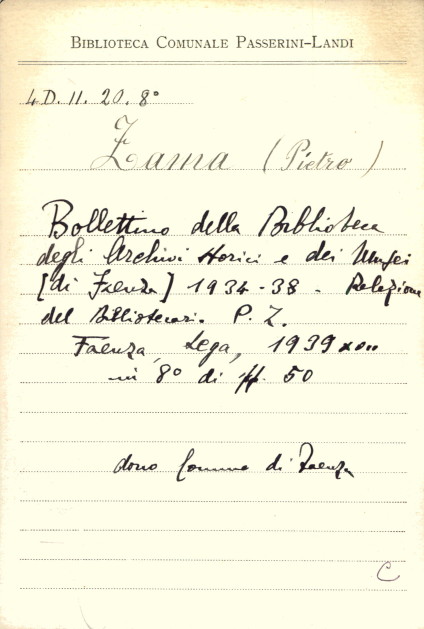 BIBLIOTECA COMUNALE PASSERINI-LANDI
4D. 11. 20. 8°
Zama (Pietro)
Bollettino della Biblioteca
degli Archivi storici e dei Musei
[di Faenza] 1934-38 - Relazione
del Bibliotecario P. Z.
Faenza, Lega, 1939
in 8° di pp. 50
dono Comune di Faenza
C